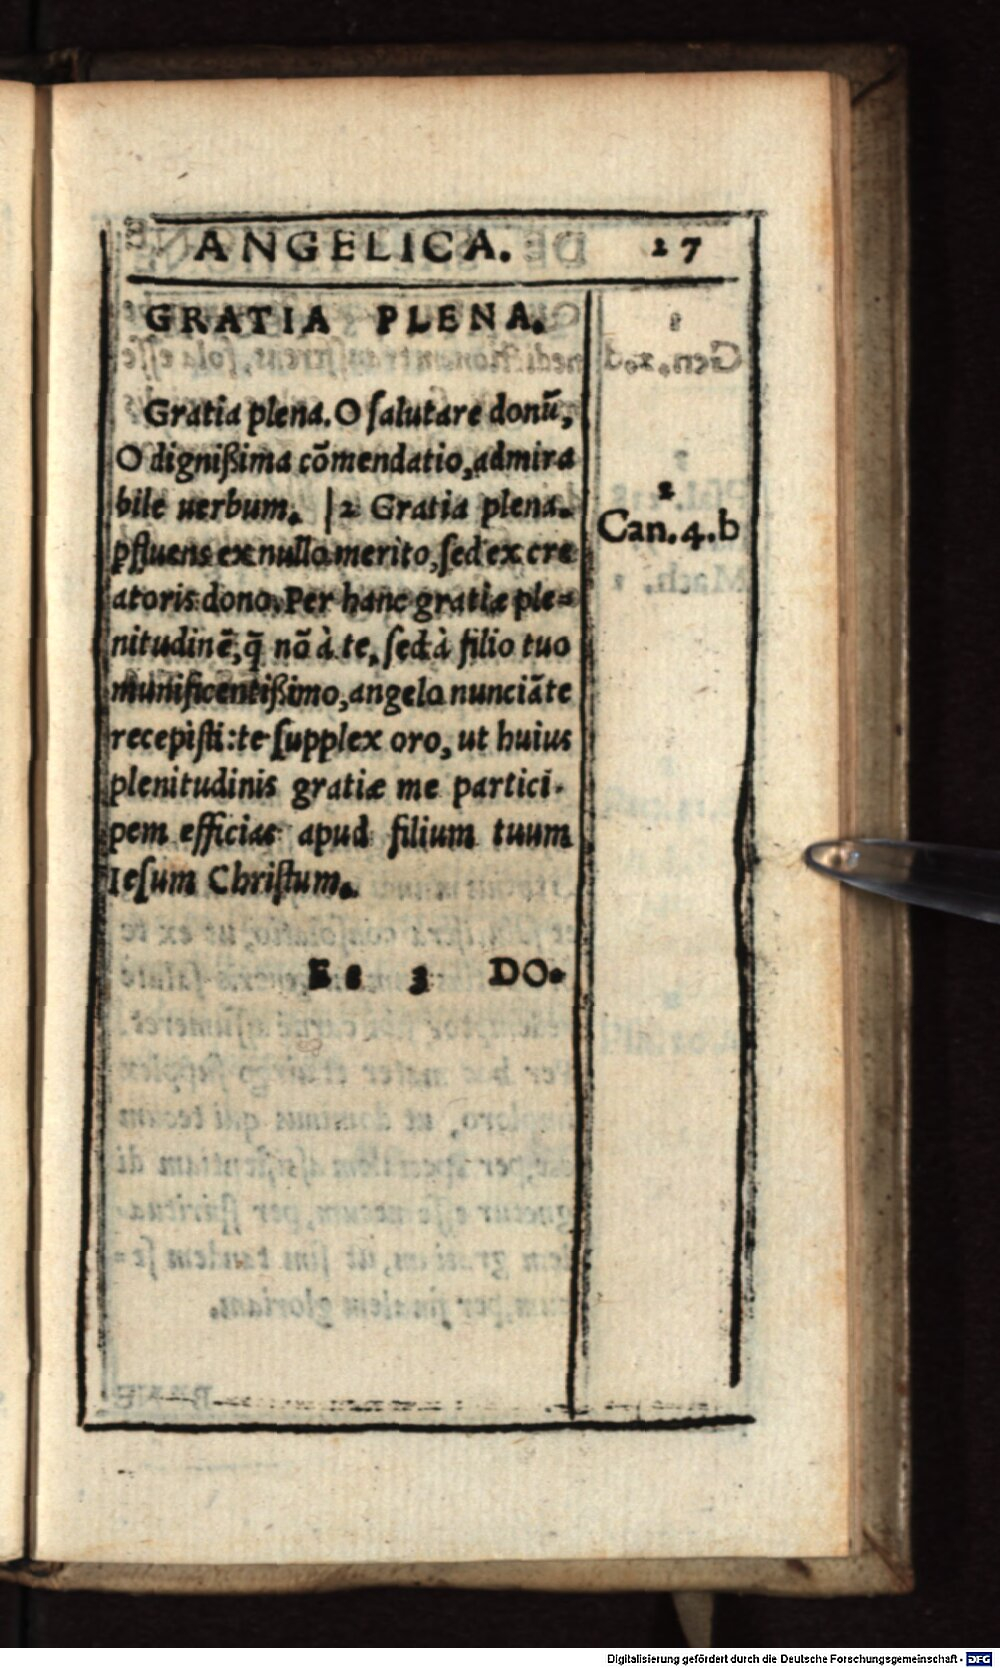 ANGELICA. 27
GRATIA PLENA.
Gratia plena. O ſalutare donũ,
O dignißima cõmendatio, admira
bile uerbum. | 2 Gratia plena.
2
Can. 4. b
ꝓfluens ex nullo merito, ſed ex cre
atoris dono. Per hanc gratiæ ple=
nitudinẽ, q̃ nõ à te, ſed à filio tuo
munificentißimo, angelo nunciãte
recepiſti: te ſupplex oro, ut huius
plenitudinis gratiæ me partici-
pem efficias apud filium tuum
Ieſum Chriſtum.
E 3 DO.
Digitalisierung gefördert durch die Deutsche Forschungsgemeinschaft - DFG